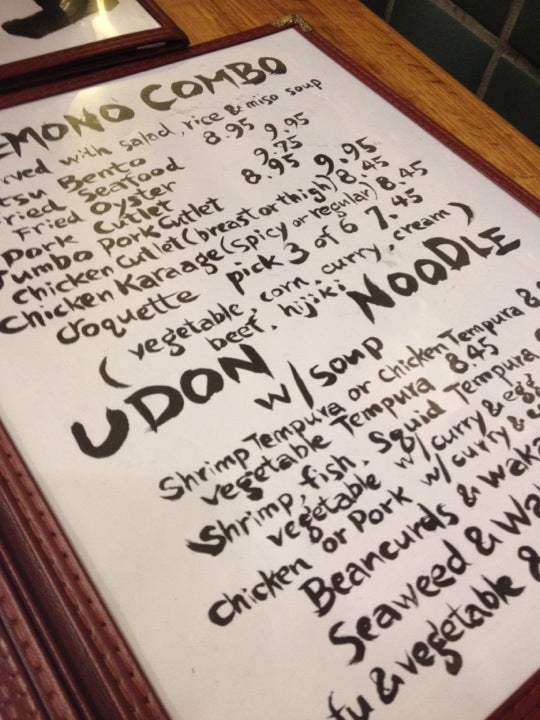 EMONO COMBO
rved with salad, rice & miso soup
tsu Bento 8.95 9.95
Fried Seafood 9.75
Fried Oyster 8.95
Pork Cutlet
Jumbo Pork Cutlet 9.95
Chicken Cutlet (breast or thigh) 8.45
Chicken Karaage (spicy or regular) 8.45
Croquette pick 3 of 6 7.45
( vegetable, corn, curry, cream )
beef, hijiki
UDON NOODLE
w/ soup
Shrimp Tempura or chicken Tempura 8
vegetable Tempura 8.45
Shrimp, fish, Squid Tempura
vegetable w/ curry & egg
chicken or Pork w/ curry & e
Beancurds & waka
Seaweed & Wa
fu & vegetable &